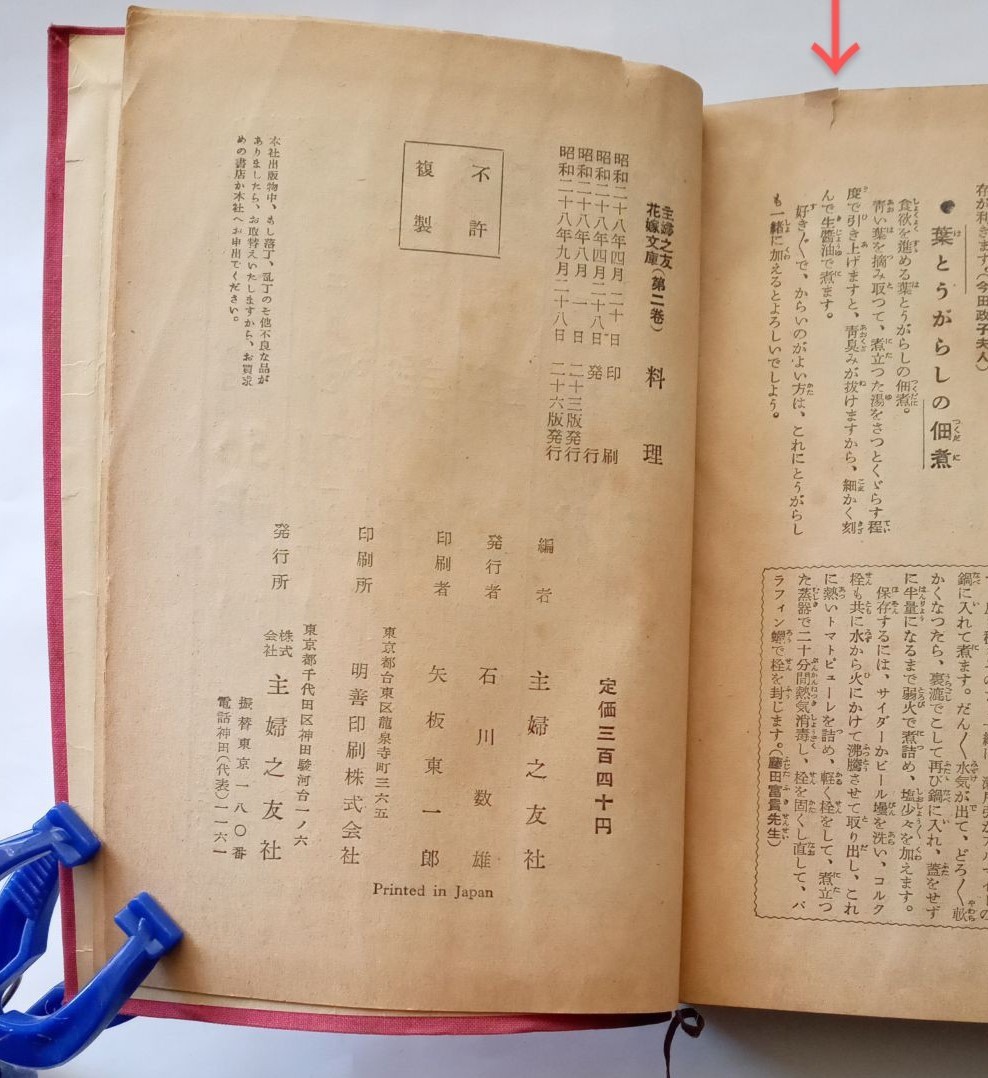 在が利きます。(今田政子夫人)
葉とうがらしの佃煮
食欲を進める葉とうがらしの佃煮。
靑い葉を摘み取つて、煮立つた湯をさつとくゞらす程
度で引き上げますと、靑臭みが拔けますから、細かく刻
んで生醬油で煮ます。
好き〴〵で、からいのがよい方は、これにとうがらし
も一緒に加えるとよろしいでしよう。
鍋に入れて煮ます。だん〳〵水気が出て、どろ〳〵軟
かくなつたら、裏漉でこして再び鍋に入れ、蓋をせず
に半量になるまで弱火で煮詰め、塩少々を加えます。
保存するには、サイダーかビール壜を洗い、コルク
栓も共に水から火にかけて沸騰させて取り出し、これ
に熱いトマトピューレを詰め、軽く栓をして、煮立つ
た蒸器で二十分間熱気消毒し、栓を固くし直して、パ
ラフィン蠟で栓を封じます。(藤田富貴先生)
主婦之友
花嫁文庫(第二卷) 料理
昭和二十八年四月二十日 印刷
昭和二十八年四月二十八日 発行
昭和二十八年八月一日 二十三版発行
昭和二十八年九月二十八日 二十六版発行
不許
複製
本社出版物中、もし落丁、乱丁のその他不良な品が
ありましたら、お取替えいたしますから、お買求
めの書店か本社へお申出でください。
定価三百四十円
編者 主婦之友社
発行者 石川数雄
印刷者 矢板東一郎
東京都台東区龍泉寺町三六五
印刷所 明善印刷株式会社
東京都千代田区神田駿河台一ノ六
発行所 株式会社 主婦之友社
振替東京一八〇番
電話神田(代表)一一六一
Printed in Japan